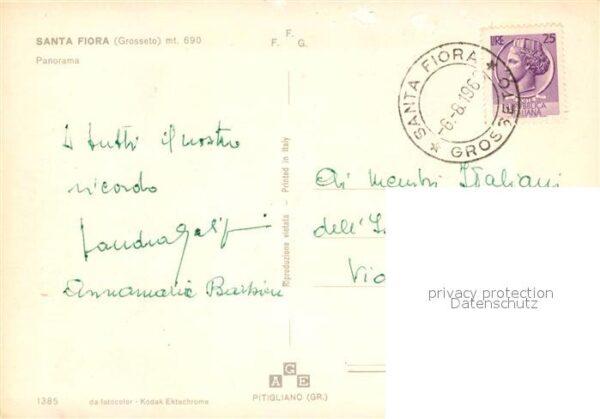 SANTA FIORA (Grosseto) mt. 690
Panorama
F.
F. G.
LIRE 25
SANTA FIORA * GROSSETO *
-6.-8.196
A tutti il nostro
ricordo
Sandra
Annamaria
Ai membri Italiani
dell'
Via
Riproduzione vietata - Printed in Italy
privacy protection
Datenschutz
AGE
PITIGLIANO (GR.)
1385 da fotocolor - Kodak Ektachrome